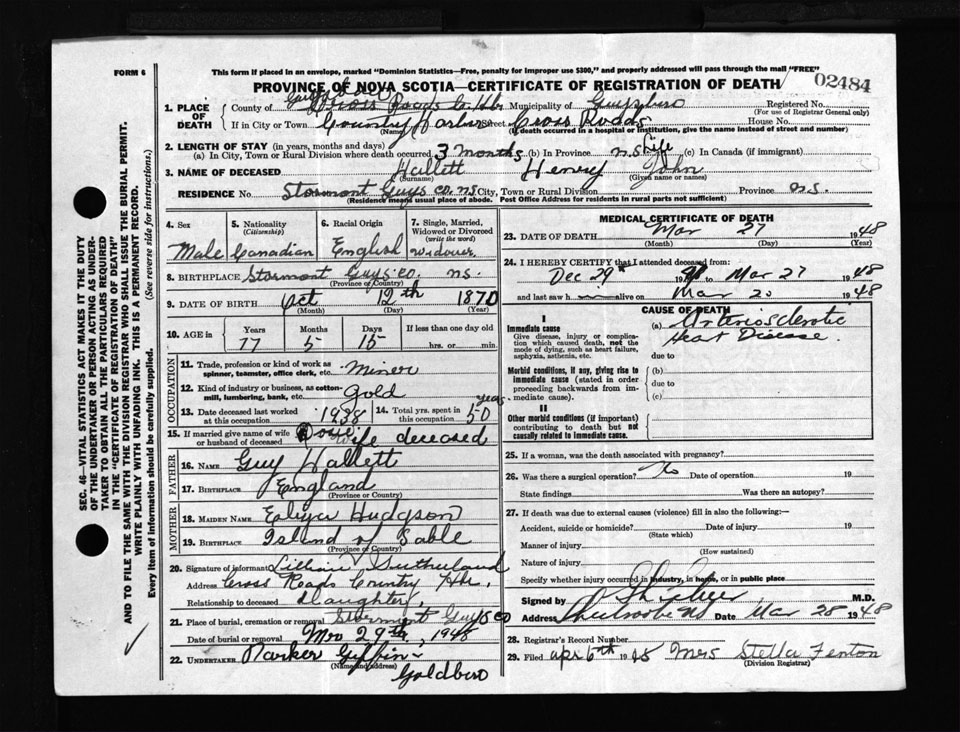 FORM 6
This form if placed in an envelope, marked "Dominion Statistics—Free, penalty for improper use $300," and properly addressed will pass through the mail "FREE"
PROVINCE OF NOVA SCOTIA—CERTIFICATE OF REGISTRATION OF DEATH
02484
1. PLACE OF DEATH
County of Cross Roads Co. Hbr Municipality of Guysboro Registered No.
(For use of Registrar General only)
If in City or Town Country Harbor Street Cross Roads House No.
(Name) (If death occurred in a hospital or institution, give the name instead of street and number)
2. LENGTH OF STAY (in years, months and days)
(a) In City, Town or Rural Division where death occurred 3 months (b) In Province N.S. Life (c) In Canada (if immigrant)
3. NAME OF DECEASED Hallett Henry John
(Surname) (Given name or names)
RESIDENCE No. Stormont Guys Co. NS City, Town or Rural Division Province N.S.
(Residence means usual place of abode. Post Office Address for residents in rural parts not sufficient)
4. Sex Male
5. Nationality (Citizenship) Canadian
6. Racial Origin English
7. Single, Married, Widowed or Divorced (write the word) Widower
8. BIRTHPLACE Stormont Guys Co. NS.
(Province or Country)
9. DATE OF BIRTH Oct 12th 1870
(Month) (Day) (Year)
10. AGE in Years Months Days If less than one day old
77 5 15 hrs. or min.
OCCUPATION
11. Trade, profession or kind of work as spinner, teamster, office clerk, etc. Miner
12. Kind of industry or business, as cotton-mill, lumbering, bank, etc. Gold
13. Date deceased last worked at this occupation 1938
14. Total yrs. spent in this occupation 50 years
15. If married give name of wife or husband of deceased wife deceased
FATHER
16. NAME Guy Hallett
17. BIRTHPLACE England
(Province or Country)
MOTHER
18. MAIDEN NAME Eliza Hudgson
19. BIRTHPLACE Island of Sable
(Province or Country)
20. Signature of informant Lillian Sutherland
Address Cross Roads Country Hbr.
Relationship to deceased daughter
21. Place of burial, cremation or removal Stormont Guys Co
Date of burial or removal 29th, 1948
22. UNDERTAKER Parker Giffin — Goldboro
(Name and address)
MEDICAL CERTIFICATE OF DEATH
23. DATE OF DEATH Mar 27 1948
(Month) (Day) (Year)
24. I HEREBY CERTIFY that I attended deceased from:
Dec 29th 19 to Mar 27 1948
and last saw h im alive on Mar 20 1948
CAUSE OF DEATH
I
Immediate cause
Give disease, injury or complication which caused death, not the mode of dying, such as heart failure, asphyxia, asthenia, etc.
(a) Arteriosclerotic Heart Disease.
due to
Morbid conditions, if any, giving rise to immediate cause (stated in order proceeding backwards from immediate cause).
(b)
due to
(c)
II
Other morbid conditions (if important) contributing to death but not causally related to immediate cause.
25. If a woman, was the death associated with pregnancy?
26. Was there a surgical operation? No Date of operation 19
State findings Was there an autopsy?
27. If death was due to external causes (violence) fill in also the following:—
Accident, suicide or homicide? Date of injury 19
(State which)
Manner of injury
(How sustained)
Nature of injury
Specify whether injury occurred in industry, in home, or in public place
Signed by M.D.
Address Date Mar 28 1948
28. Registrar's Record Number
29. Filed Apr 6th 1948 Mrs Stella Fenton
(Division Registrar)
SEC. 46—VITAL STATISTICS ACT MAKES IT THE DUTY OF THE UNDERTAKER OR PERSON ACTING AS UNDERTAKER TO OBTAIN ALL THE PARTICULARS REQUIRED IN THE "CERTIFICATE OF REGISTRATION OF DEATH" AND TO FILE THE SAME WITH THE DIVISION REGISTRAR WHO SHALL ISSUE THE BURIAL PERMIT.
WRITE PLAINLY WITH UNFADING INK. THIS IS A PERMANENT RECORD.
Every item of information should be carefully supplied. (See reverse side for instructions.)